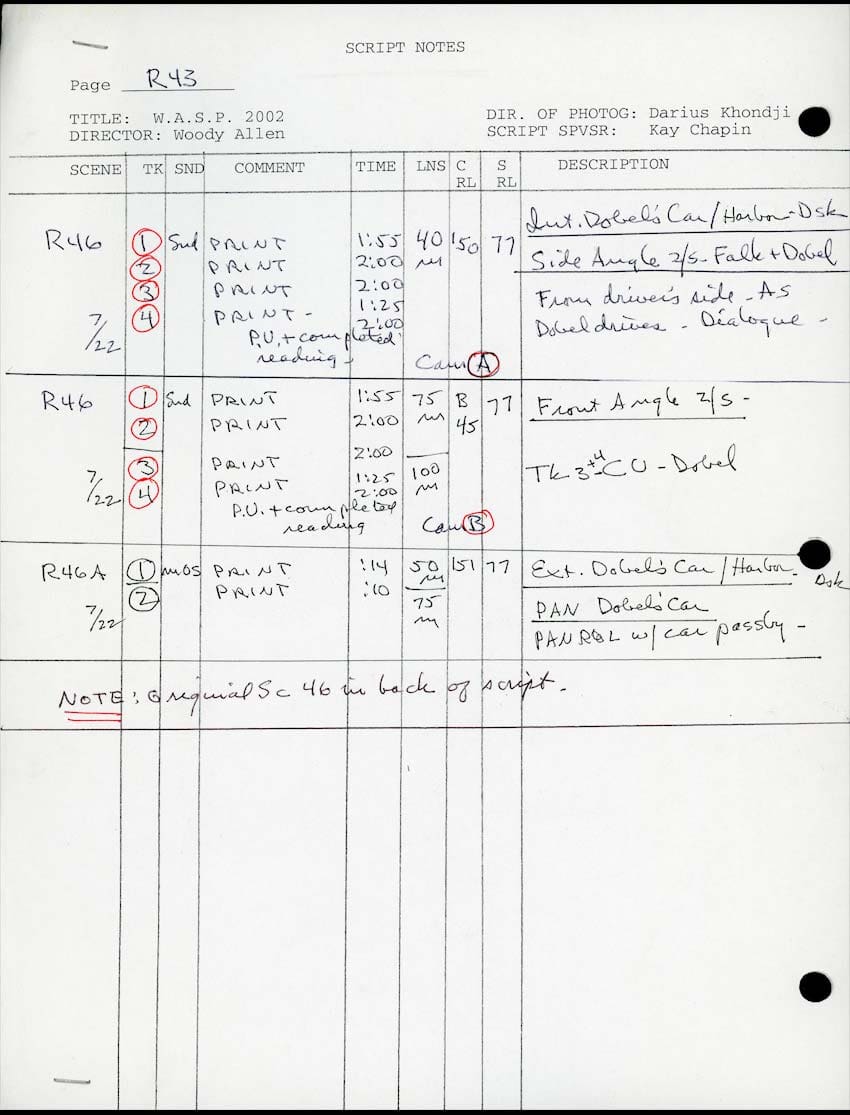 SCRIPT NOTES
Page R43
TITLE: W.A.S.P. 2002 DIR. OF PHOTOG: Darius Khondji
DIRECTOR: Woody Allen SCRIPT SPVSR: Kay Chapin
SCENE TK SND COMMENT TIME LNS C RL S RL DESCRIPTION
Int. Dobel's Car/Harbor-Dsk
R46 1 Snd PRINT 1:55 40 150 77
2 PRINT 2:00 m Side Angle 2/S - Falk + Dobel
3 PRINT 2:00 From driver's side - As
4 PRINT - 1:25 Dobel drives - Dialogue -
7/22 P.U. + completed 2:00
reading - Cam A
R46 1 Snd PRINT 1:55 75 B 77 Front Angle 2/S -
2 PRINT 2:00 m 45
2:00
3 PRINT 100 TK 3 + 4 - CU - Dobel
7/22 4 PRINT 1:25 m
P.U. + completed 2:00
reading Cam B
R46A 1 MOS PRINT :14 50 151 77 Ext. Dobel's Car/Harbor - Dsk
2 PRINT :10 m
7/22 75 PAN Dobel's Car
m PAN R&L w/ car passby -
NOTE: Origuial Sc 46 in back of script.